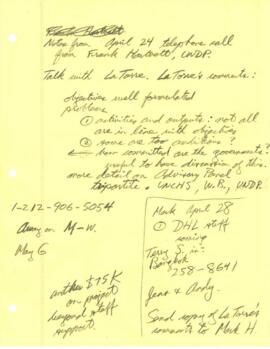 Notes from April 24 telephone call
from Frank Hartvelt, UNDP.
Talk with La Torre. La Torre's comments:
objectives well formulated
problems
① activities and outputs: not all
are in line with objectives
② some are too ambitious?
how committed are the governments?
useful to have discussion of this.
more detail on Advisory Panel
tripartite. UNCHS, W.B., UNDP.
1-212-906-5054
Away on M-W.
May 6
another $75K
on project
beyond staff
support.
Mark April 28
① DHL stuff
coming
Terry S. in:
Bangkok
258-8641
Jena & Andy.
Send copy of La Torre's
comments to Mark H.